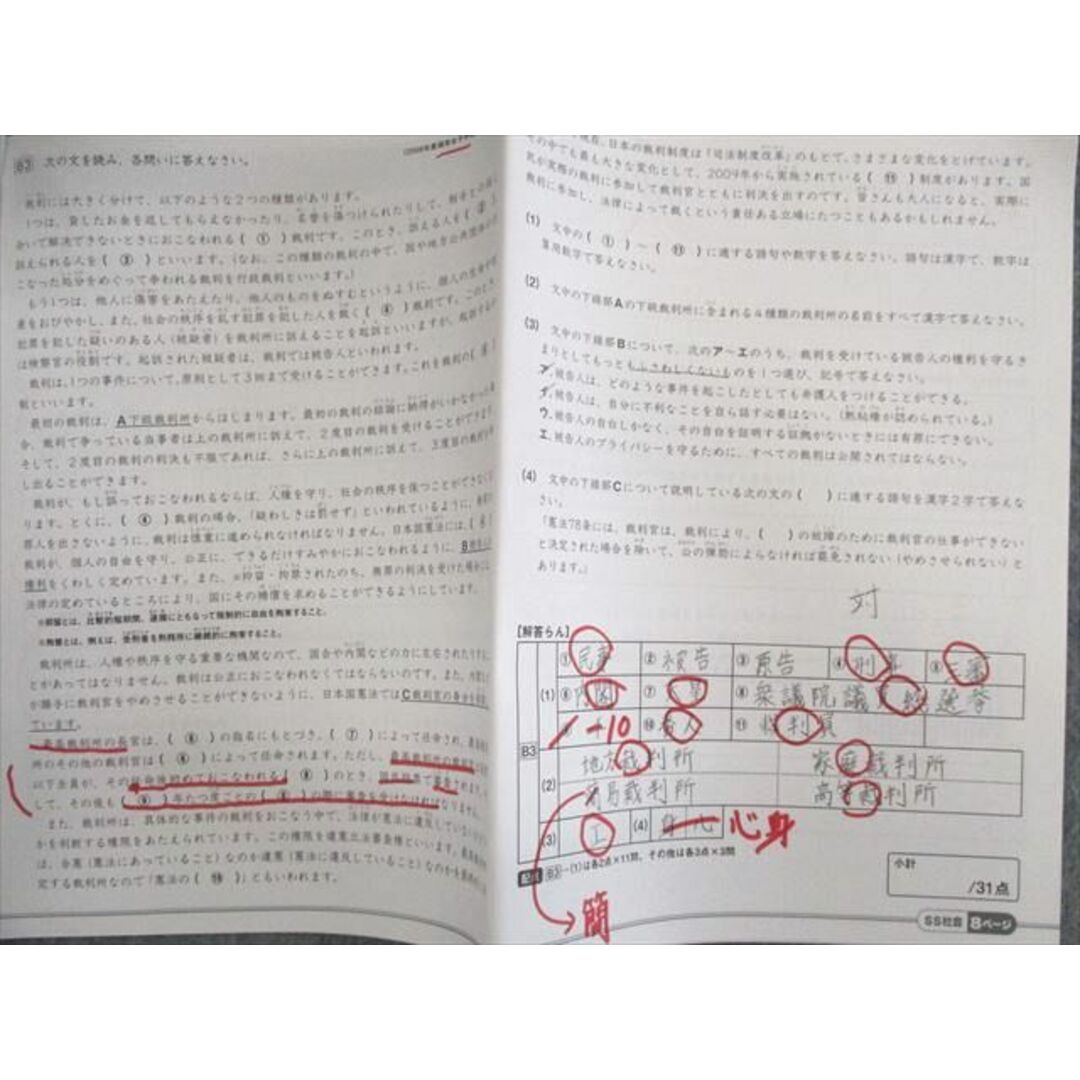 B3 次の文を読み、各問いに答えなさい。
裁判には大きく分けて、以下のような2つの種類があります。
1つは、貸したお金を返してもらえなかったり、名誉を傷つけられたりして、
合いで解決できないときにおこなわれる( ① )裁判です。このとき、訴える人を( ②
訴えられる人を( ③ )といいます。(なお、この種類の裁判の中で、国や地方公共団体の
こなった処分をめぐって争われる裁判を行政裁判といいます。)
もう1つは、他人に傷害をあたえたり、他人のものをぬすむというように、個人の生命や
産をおびやかし、また、社会の秩序を乱す犯罪を犯した人を裁く( ④ )裁判です。このとき
犯罪を犯した疑いのある人(被疑者)を裁判所に訴えることを起訴といいますが、起訴する
は検察官の役割です。起訴された被疑者は、裁判では被告人といわれます。
裁判は、1つの事件について、原則として3回まで受けることができます。これを裁判の( ⑤
制といいます。
最初の裁判は、A下級裁判所からはじまります。最初の裁判の結論に納得がいかなかった場
合、裁判で争っている当事者は上の裁判所に訴えて、2度目の裁判を受けることができます。
そして、2度目の裁判の判決も不服であれば、さらに上の裁判所に訴えて、3度目の裁判を
し出ることができます。
裁判が、もし誤っておこなわれるならば、人権を守り、社会の秩序を保つことができなく
ります。とくに、( ④ )裁判の場合、「疑わしきは罰せず」といわれているように、無実の
罪人を出さないように、裁判は慎重に進められなければなりません。日本国憲法には、(
裁判が、個人の自由を守り、公正に、できるだけすみやかにおこなわれるように、B被告人の
権利をくわしく定めています。また、※抑留・拘禁されたのち、無罪の判決を受けた場合に
法律の定めているところにより、国にその補償を求めることができるようにしています。
※抑留とは、比較的短期間、逮捕にともなって強制的に自由を拘束すること。
※拘禁とは、例えば、受刑者を刑務所に継続的に拘束すること。
裁判所は、人権や秩序を守る重要な機関なので、国会や内閣などの力に左右されたりするこ
とがあってはなりません。裁判は公正におこなわれなくてはならないのです。また、内閣など
が勝手に裁判官をやめさせることができないように、日本国憲法ではC裁判官の身分を
ています。
最高裁判所の長官は、( ⑥ )の指名にもとづき、( ⑦ )によって任命され、最高裁
所のその他の裁判官は( ⑥ )によって任命されます。ただし、最高裁判所の裁判官
以下全員が、その任命後初めておこなわれる( ⑧ )のとき、国民投票で審査されます。
して、その後も( ⑨ )年たつ度ごとの( ⑧ )の際に審査を受けなければなりません。
また、裁判所は、具体的な事件の裁判をおこなう中で、法律が憲法に違反していないか
かを判断する権限をあたえられています。この権限を違憲立法審査権といいます。最高裁
は、合憲(憲法にあっていること)なのか違憲(憲法に違反していること)なのかを最終的に
定する裁判所なので「憲法の( ⑩ )」ともいわれます。
現在、日本の裁判制度は「司法制度改革」のもとで、さまざまな変化をとげています。
その中でも最も大きな変化として、2009年から実施されている( ⑪ )制度があります。国
民が実際の裁判に参加して裁判官とともに判決を出すのです。皆さんも大人になると、実際に
裁判に参加し、法律によって裁くという責任ある立場にたつこともあるかもしれません。
(1) 文中の( ① )~( ⑪ )に適する語句や数字を答えなさい。語句は漢字で、数字は
算用数字で答えなさい。
(2) 文中の下線部Aの下級裁判所に含まれる4種類の裁判所の名前をすべて漢字で答えなさい。
(3) 文中の下線部Bについて、次のア~エのうち、裁判を受けている被告人の権利を守るき
まりとしてもっともふさわしくないものを1つ選び、記号で答えなさい。
ア.被告人は、どのような事件を起こしたとしても弁護人をつけることができる。
イ.被告人は、自分に不利なことを自ら話す必要はない。(黙秘権が認められている。)
ウ.被告人の自白しかなく、その自白を証明する証拠がないときには有罪にできない。
エ.被告人のプライバシーを守るために、すべての裁判は公開されてはならない。
(4) 文中の下線部Cについて説明している次の文の( )に適する語句を漢字2字で答えな
さい。
「憲法78条には、裁判官は、裁判により、( )の故障のために裁判官の仕事ができない
と決定された場合を除いて、公の弾劾によらなければ罷免されない(やめさせられない)と
あります。」
対
[解答らん]
B3
(1) ①民事 ②被告 ③原告 ④刑事 ⑤三審
⑥内閣 ⑦天皇 ⑧衆議院議員総選挙
10 ⑩番人 ⑪裁判員
(2) 地方裁判所 家庭裁判所
簡易裁判所 高等裁判所
(3) エ (4) 心身
配点 B3-(1)は各2点×11問、その他は各3点×3問
簡
小計
/31点
SS社会 8ページ